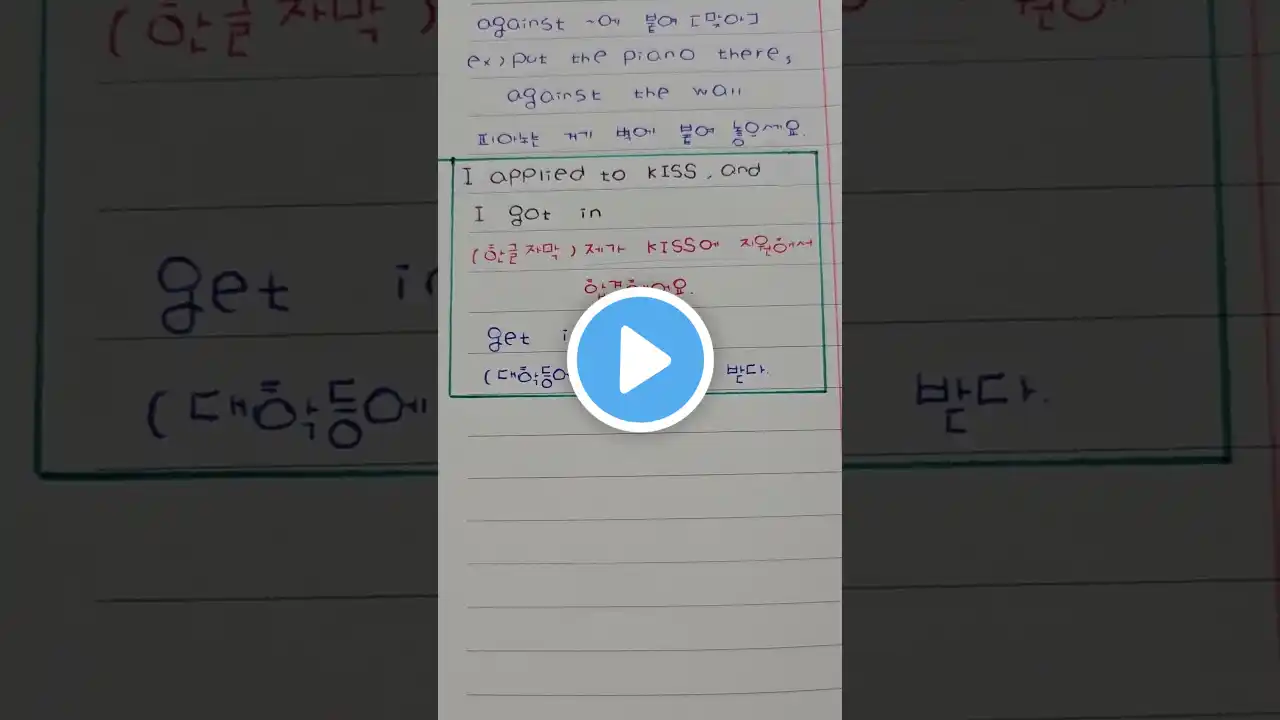 against ~에 붙여 [맞아]
ex) put the piano there,
against the wall
피아노는 거기 벽에 붙여 놓으세요.
I applied to KISS, and
I got in
(한글자막) 제가 KISS에 지원해서
합격했어요.
get
(대학등에 받다.